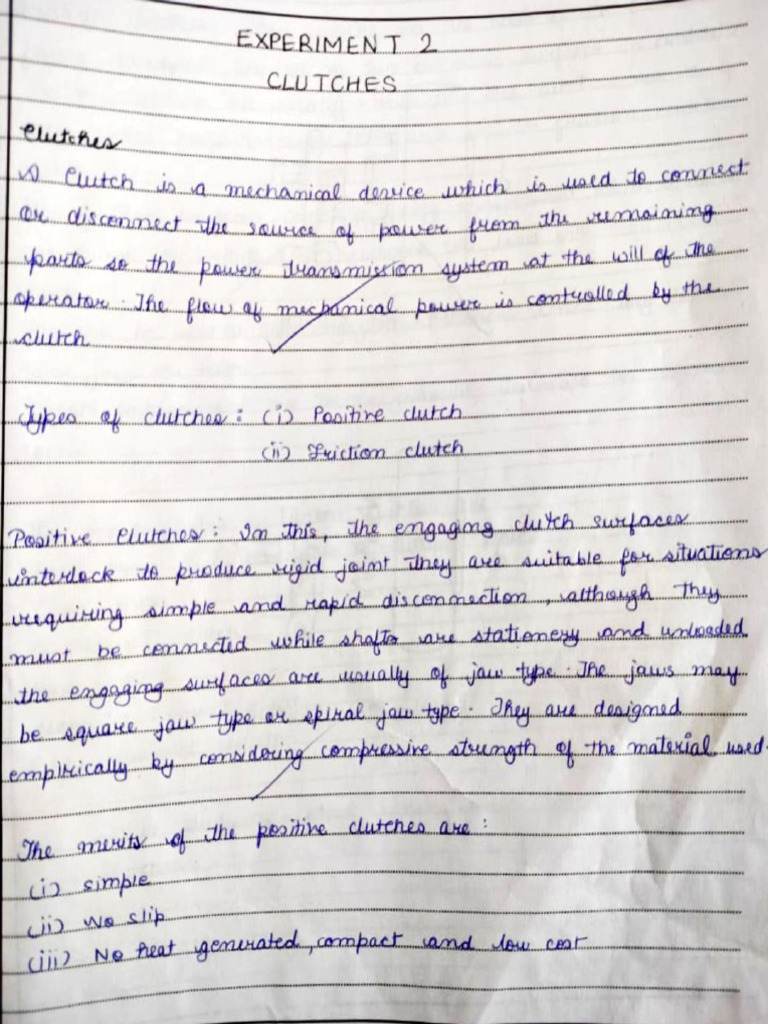 EXPERIMENT 2
CLUTCHES
Clutches
A Clutch is a mechanical device which is used to connect
or disconnect the source of power from the remaining
parts so the power transmission system at the will of the
operator. The flow of mechanical power is controlled by the
clutch
Types of clutches : (i) Positive clutch
(ii) Friction clutch
Positive Clutches : In this, the engaging clutch surfaces
interlock to produce rigid joint they are suitable for situations
requiring simple and rapid disconnection, although they
must be connected while shafts are stationery and unloaded
the engaging surfaces are usually of jaw type. The jaws may
be square jaw type or spiral jaw type. They are designed
empirically by considering compressive strength of the material used.
The merits of the positive clutches are :
(i) simple
(ii) No slip
(iii) No heat generated, compact and low cost